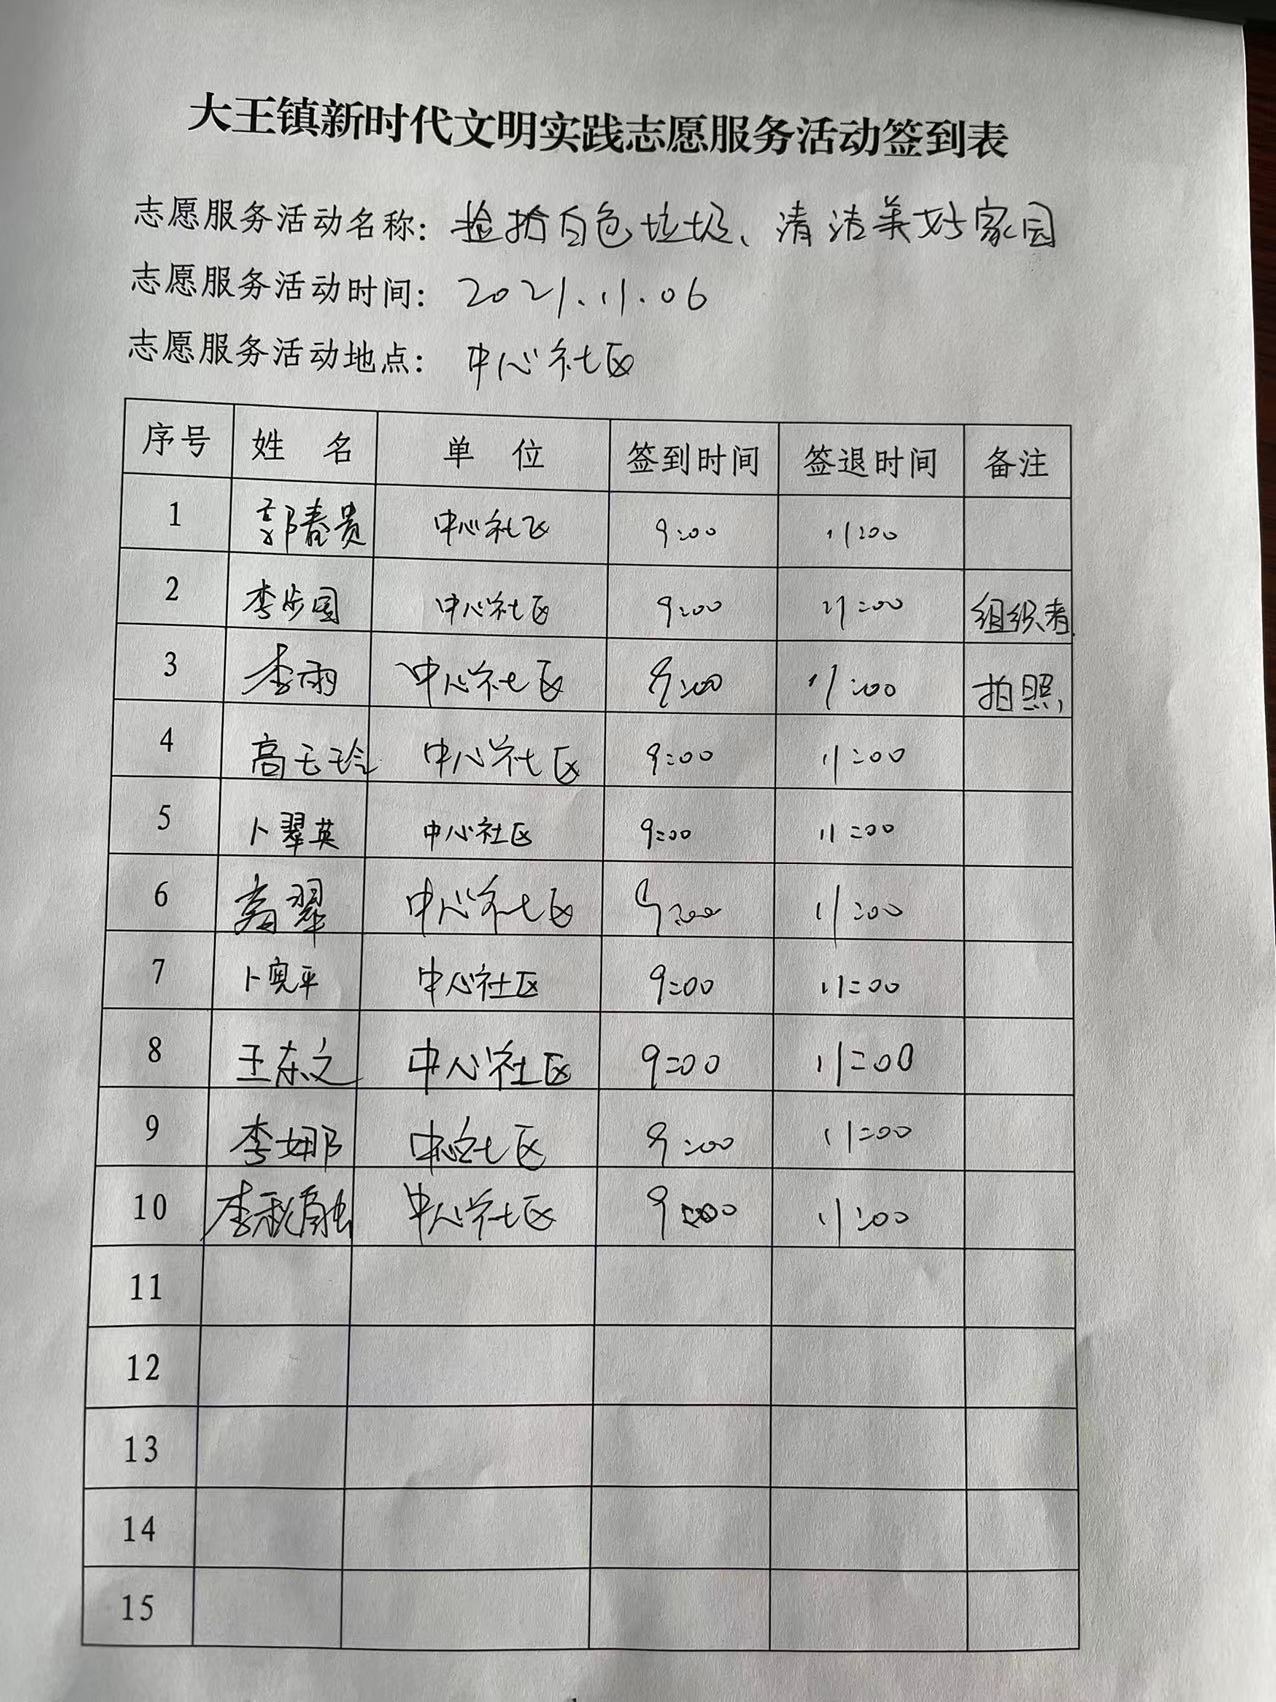 大王镇新时代文明实践志愿服务活动签到表
志愿服务活动名称：捡拾白色垃圾、清洁美好家园
志愿服务活动时间：2021.11.06
志愿服务活动地点：中心社区
序号 姓名 单位 签到时间 签退时间 备注
1 郭春贵 中心社区 9:00 11:00
2 李步国 中心社区 9:00 11:00 组织者
3 李雨 中心社区 9:00 11:00 拍照
4 高玉玲 中心社区 9:00 11:00
5 卜翠英 中心社区 9:00 11:00
6 翠 中心社区 9:00 11:00
7 卜宪平 中心社区 9:00 11:00
8 王东文 中心社区 9:00 11:00
9 李娜 中心社区 9:00 11:00
10 李秋融 中心社区 9:00 11:00
11
12
13
14
15